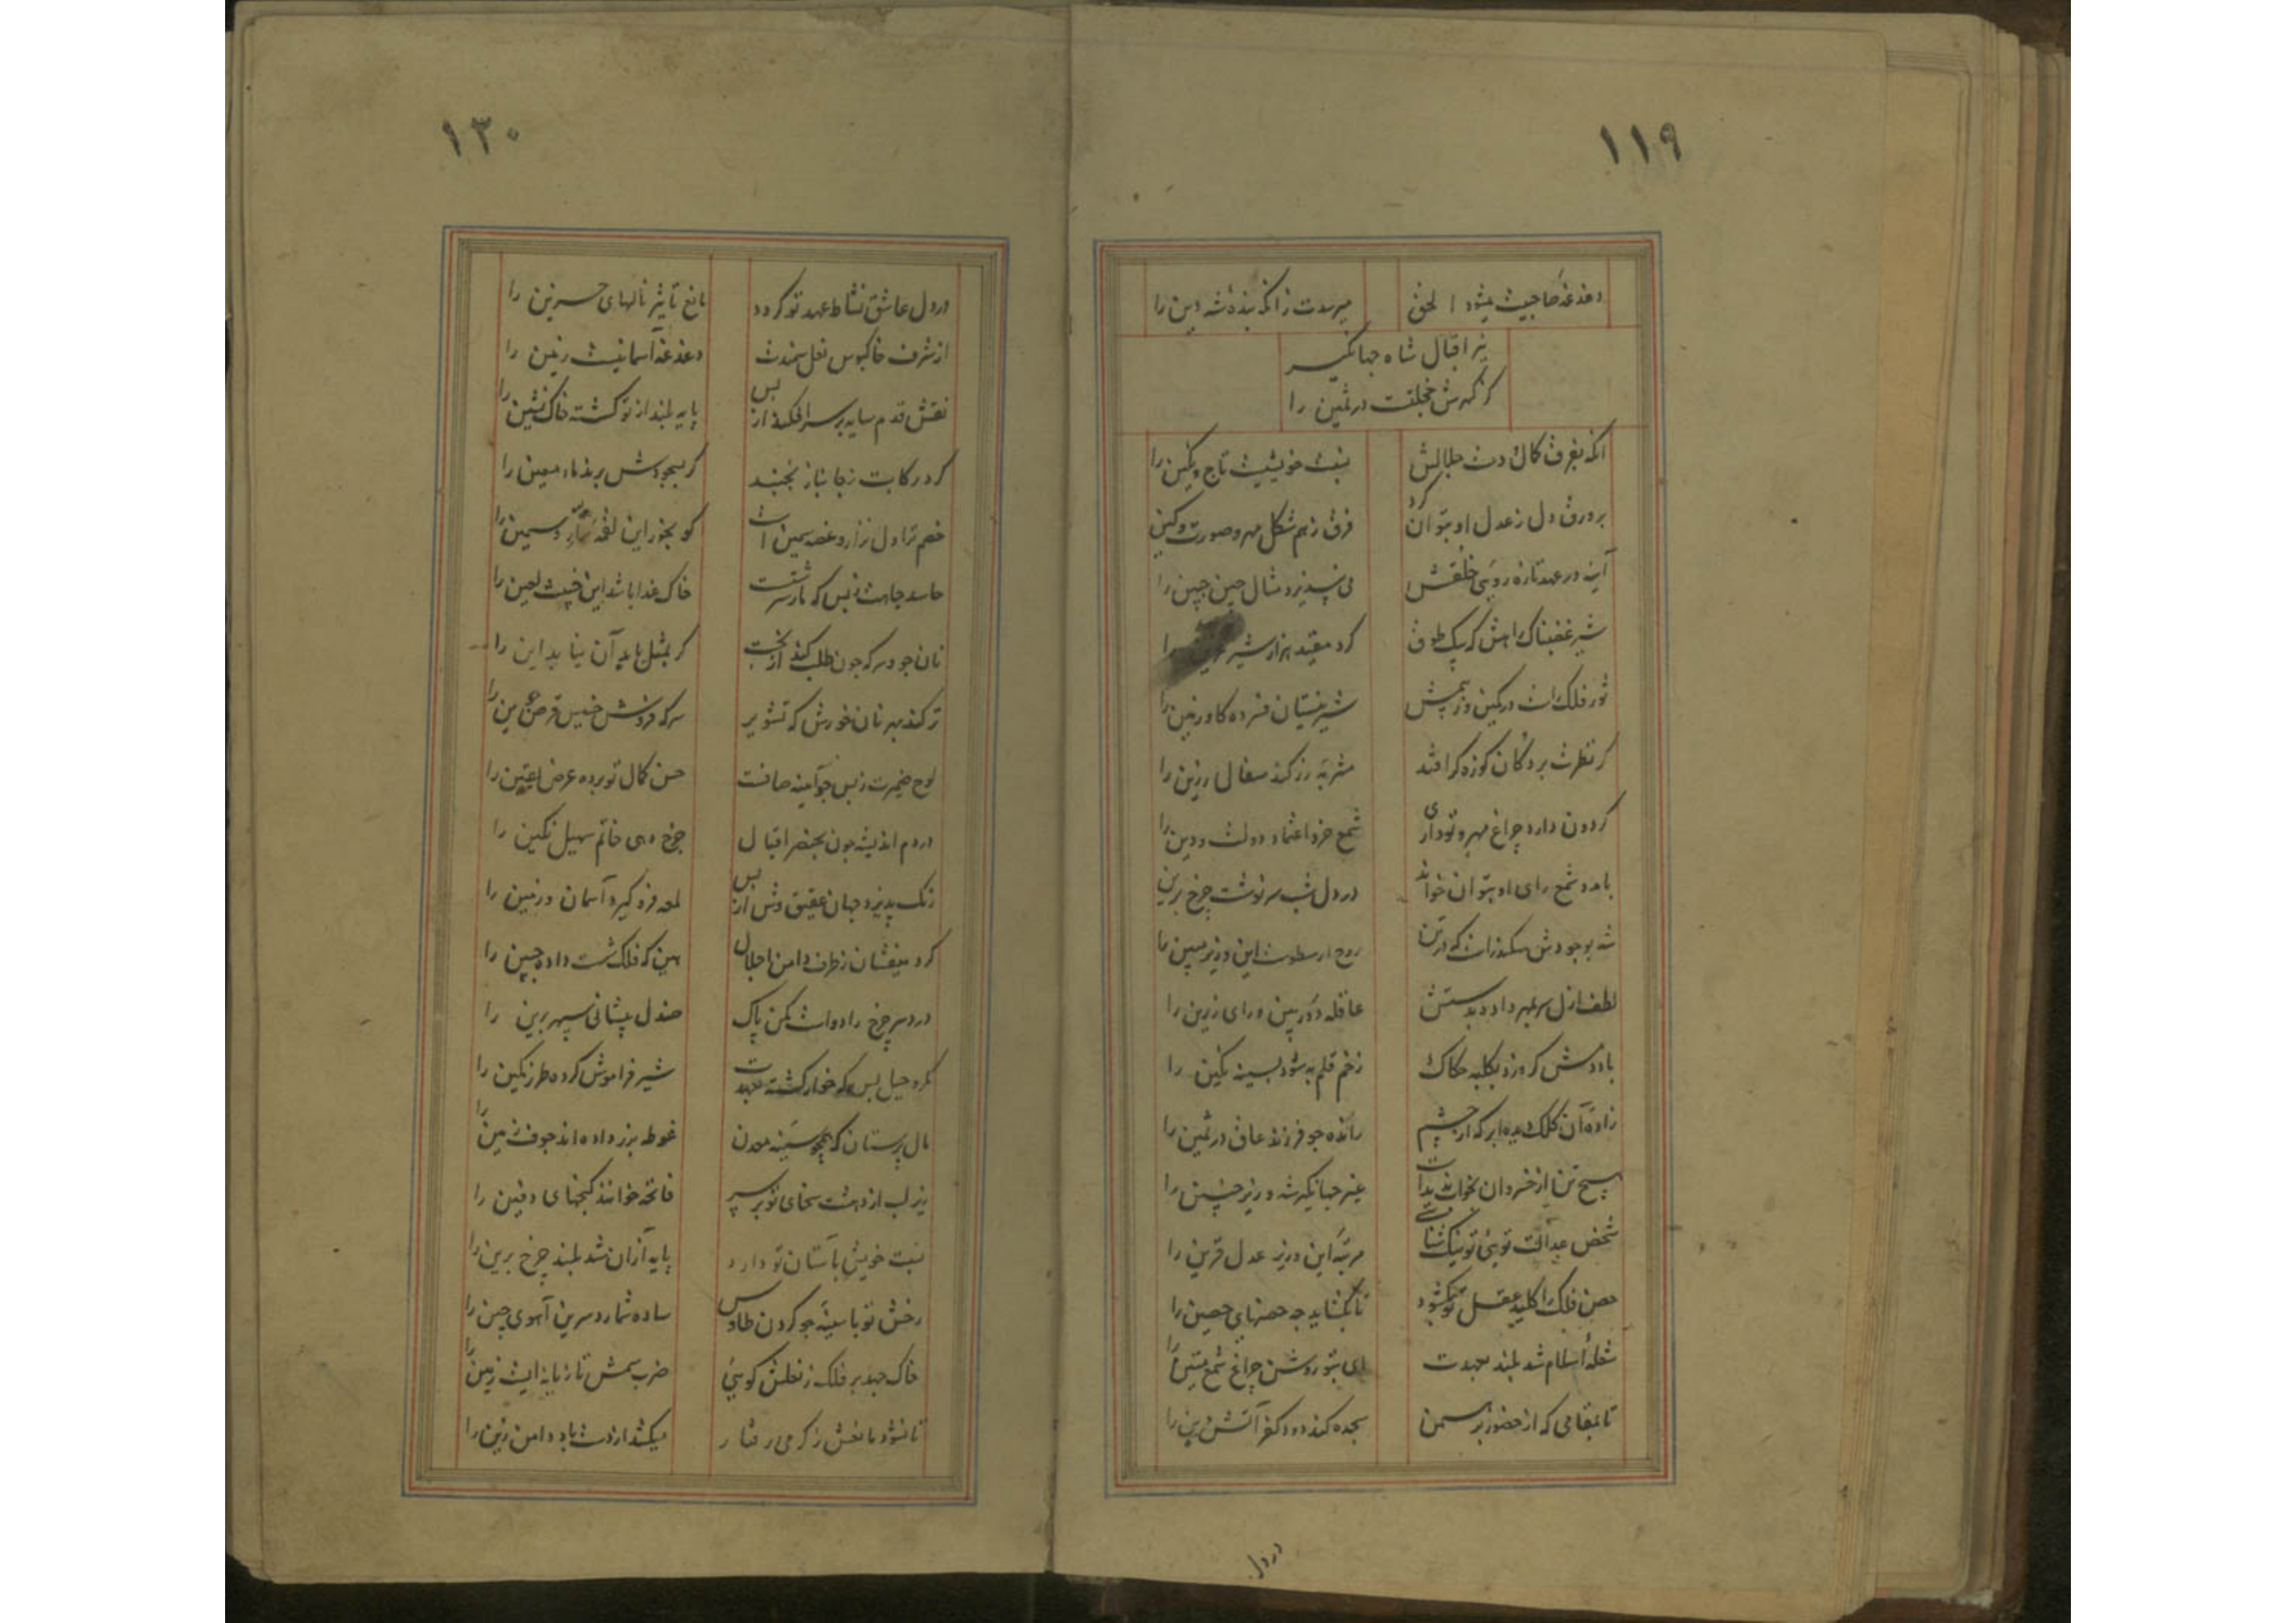 ۱۱۹
دغدغهٔ صاحبیت میشود الحق میرسدت زانکه بندهٔ شه دین را
نیر اقبال شاه جهانگیر
کز گهرش خجلتست در ثمین را
آنکه بفرق کمال و دست جلالش نسبت خویشیست تاج و نگین را
بر ورق دل ز عدل او بتوان کرد فرق ز هم شکل مهر و صورت کین را
آینه در عهد تازه روئی خلقش می نپذیرد مثال چین جبین را
شیر غضبناک که یک طوق کرد مقید هزار شیر را
ثور فلک است در کمین و ز بیمش شیر نیستان فسرده گاو زمین را
گر نظرت بر دکان کوزه گر افتد مشربه زر کند سفال رزین را
گردون دارد چراغ مهر و تو داری شمع خرد اعتماد دولت و دین را
بامدد شمع رای او بتوان خواند در دل شب سرنوشت چرخ برین
شه بوجودش سکندر است که در تن روح ارسطوست این وزیر مبین را
لطف ازل سر بمهر داد بدستش عاقله دوربین و رای رزین را
باد دمش گر وزد بکلبه حکاک زخم قلم به شود بسینه نگین را
زاده آن کلک دیده ابر که از چشم رانده چو فرزند عاق در ثمین را
هیچ تن از خسروان نخواست ندیدست غیر جهانگیر شه وزیر چنین را
شخص عدالت توئی تو نیک شناسی مرتبه این وزیر عدل قرین را
حصن فلک را کلید عقل تو بگشود تا بگشاید چه حصنهای حصین را
شعله اسلام شد بلند بعهدت ای بتو روشن چراغ شمع مبین را
تا بمقامی که از حضور برهمن سجده کند دود کفر آتش دین را
در دل
۱۲۰
در دل عاشق نشاط عهد تو گردد مانع تاثیر نالهای حزین را
از شرف خاکبوس نعل سمندت دغدغه آسمانیست زمین را
نقش قدم سایه بر سر افکند از بس پایه بلند از تو گشته خاک نشین را
گر در کابت ز جا بناز نجنبد گر بسجودش برند ماء معین را
خصم ترا دل نزار و غصه سمین است کو بخور این لقمهٔ و سمین را
حاسد جاهت ز بس که مار سرشتست خاک غذا باشد این خبیث لعین را
نان جو و سرکه چون طلب کند از بخت گر بمثل یابد آن نیابد این را
تر کند بهر نان خورش که تشویر سرکه فروشش خسیس قرص جوین را
لوح ضمیرت ز بس چو آینه صافست حسن کمال تو برده عرض یقین را
در دم اندیشه چون بخنصر اقبال چرخ دهی خاتم سهیل نگین را
رنگ پذیرد جهان عقیق وش از بس لمعه فرو گیرد آسمان و زمین را
گرد میفشان ز طرف دامن اجلال بین که فلک شست داده جبین را
درد سر چرخ را دواست مکن پاک صندل پیشانی سپهر برین را
مکر و حیل بس که خوار گشته بعهدت شیر فراموش کرده طرز کمین را
مال پرستان که همچو سینه معدن غوطه بزر داده اند جوف زمین را
زیر لب از دهشت سخای تو بر سر فاتحه خوانند گنجهای دفین را
نسبت خویشی بآستان تو دارد پایه از آن شد بلند چرخ برین را
رخش تو با سینه چو گردن طاوس ساده شمارد سرین آهوی چین را
خاک جهد بر فلک ز نعلش گوئی ضرب سمش تازیانه ایست زمین را
تا نشود مانعش ز گرمی رفتار میکشد از دست باد دامن زین را